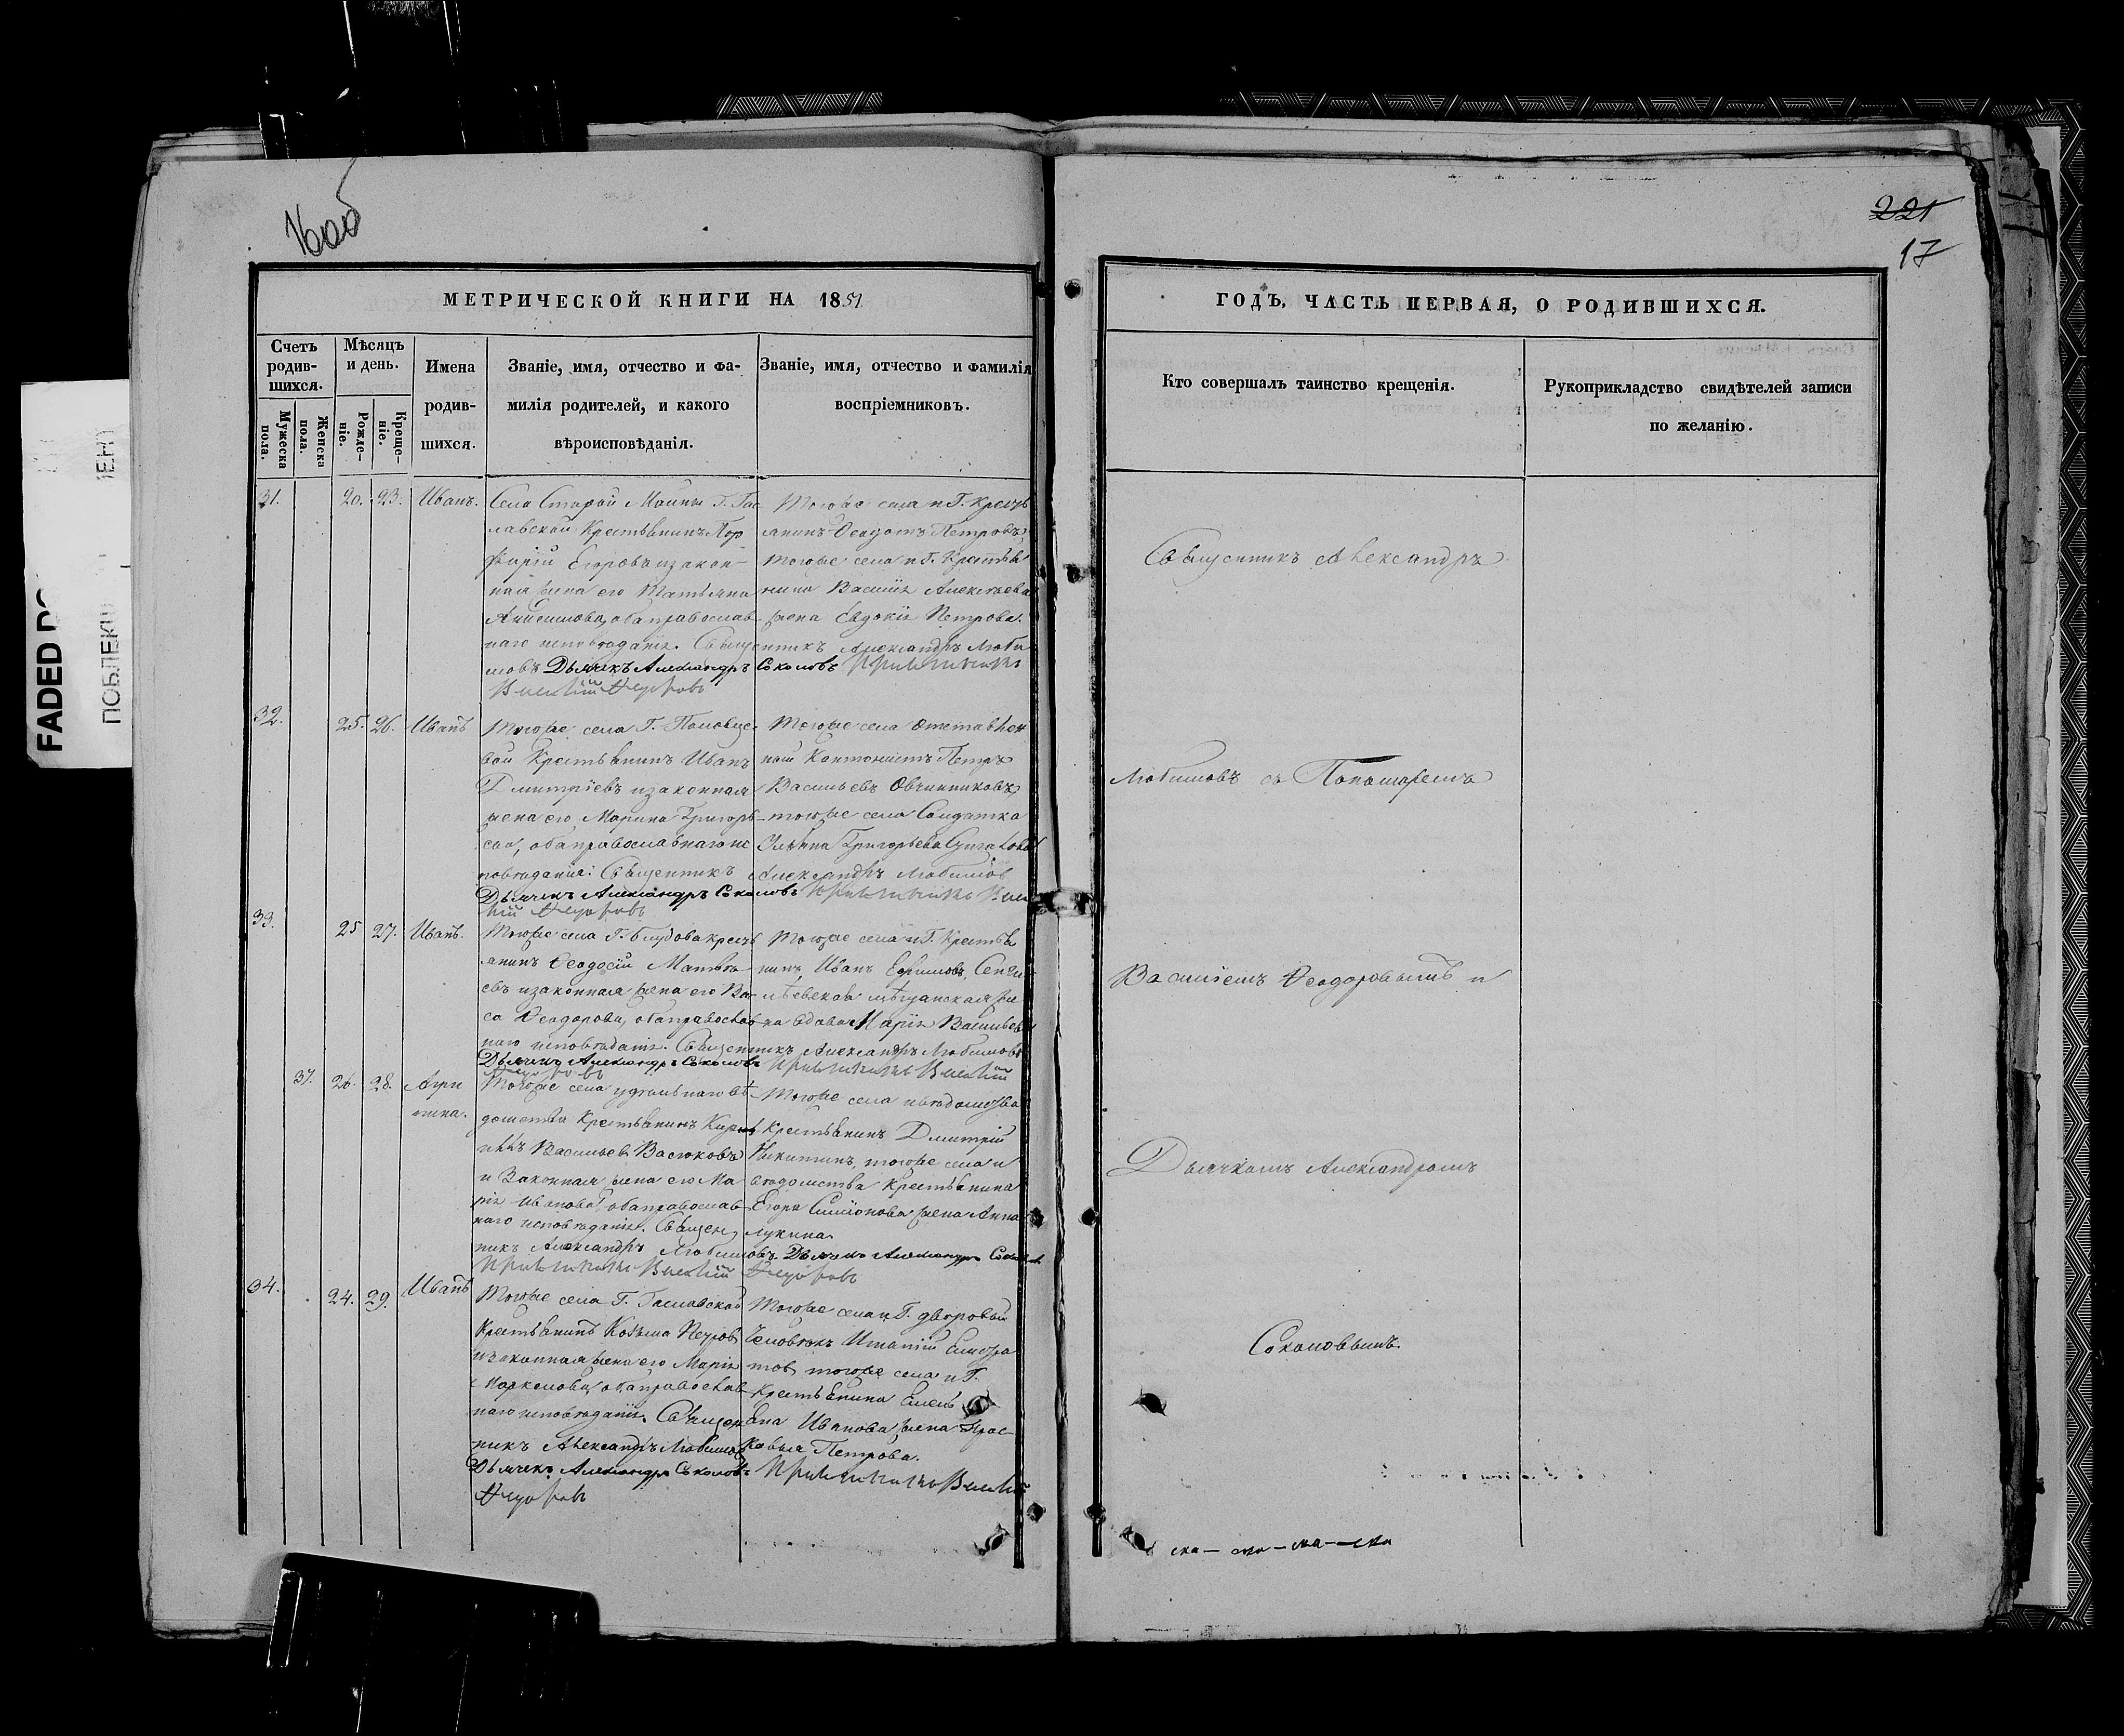 16об
221
17
МЕТРИЧЕСКОЙ КНИГИ НА 1851
ГОДЪ, ЧАСТЬ ПЕРВАЯ, О РОДИВШИХСЯ.
Счетъ родив-шихся.
Мужеска пола.
Женска пола.
Мѣсяцъ и день.
Рожде-ніе.
Креще-ніе.
Имена родив-шихся.
Званіе, имя, отчество и фа-
милія родителей, и какого
вѣроисповѣданія.
Званіе, имя, отчество и фамилія
воспріемниковъ.
Кто совершалъ таинство крещенія.
Рукоприкладство свидѣтелей записи
по желанію.
31. 20. 23. Иванъ.
Села Старой Майны Г. Гас
лавской Крестьянинъ Пор
фирій Егоровъ и закон-
ная жена его Татьяна
оба православ
наго исповѣданія. Священникъ Александръ Люби
мовъ Дьячекъ Александръ Соколовъ
Василій Федоровъ
Тогоже села и Г. Кресть
янинъ Федотъ Петровъ,
тогоже села и Г. Крестья
нина Василія Алексѣева
жена Евдокія Петрова.
32. 25. 26. Иванъ
Тогоже села Г.
вой Крестьянинъ Иванъ
Дмитріевъ и законная
жена его Марина Григорь
ева, оба православнаго ис
повѣданія: Священникъ Александръ Любимовъ
Дьячекъ Александръ Соколовъ
Федоровъ
Тогоже села Отставлен
ной Кантонистъ Петръ
Васильевъ Овчинниковъ,
тогоже села Солдатка
Ульяна Григорьева
33. 25 27. Иванъ.
Тогоже села Г. Блудова кресть
янинъ Феодосій Матвѣ
евъ и законная жена его Ва
са Феодорова, оба православ
наго исповѣданія. Священникъ Александръ Любимовъ
Дьячекъ Александръ Соколовъ
Василій
Федоровъ
Тогоже села и Г. Крестья
нинъ Иванъ Ефимовъ,
мѣщанская же
на вдова Марія Васильева
37. 26. 28. Агри
пина.
Тогоже села удѣльнаго вѣ
домства Крестьянинъ Кирил
Васильевъ Васюковъ
и Законная жена его Ма
рія Иванова, оба православ
наго исповѣданія. Священ
никъ Александръ Любимовъ. Дьячекъ Александръ Соколовъ
Василій Федоровъ
Тогоже села и вѣдомства
Крестьянинъ Дмитрій
Никитинъ, тогоже села и
вѣдомства Крестьянина
Егора Симіонова жена Анна
Лукина.
34. 24. 29. Иванъ
Тогоже села Г. Гаславской
Крестьянинъ Козьма Петров
и законная жена его Марія
оба православ
наго исповѣданія. Священ
никъ Александръ Любимов
Дьячекъ Александръ Соколовъ
Василій
Федоровъ
Тогоже села и Г. дворовый
человѣкъ Игнатій
тогоже села и Г.
Крестьянина Емель
яна Иванова жена Прас
ковья Петрова.
Священникъ Александръ
Любимовъ съ Понамаремъ
Василіемъ Феодоровымъ и
Дьячкомъ Александромъ
Соколовымъ.
FADED